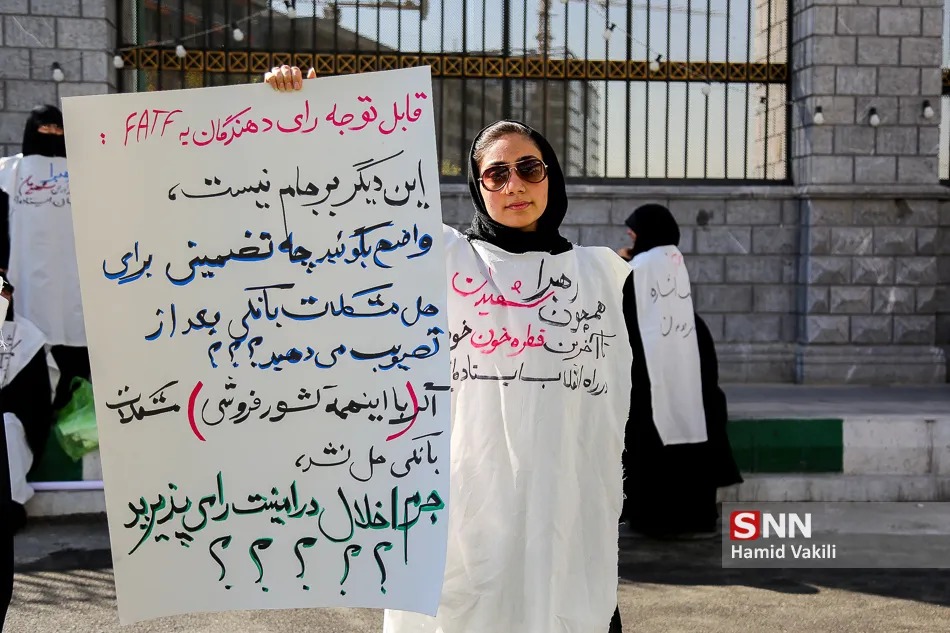 قابل توجه رای دهندگان به FATF :
این دیگر برجام نیست،
واضح بگوئید چه تضمینی برای
حل مشکلات بانکی بعد از
تصویب می دهید؟؟؟
اگر (با اینهمه کشور فروشی) مشکلات
بانکی حل نشد،
جرم اخلال در امنیت رامی پذیرید
؟ ؟ ؟ ؟ ؟
رهبرا
همچون شهیدان
تا آخرین قطره خون خود
در راه انقلاب ایستاده‌ایم
SNN
Hamid Vakili